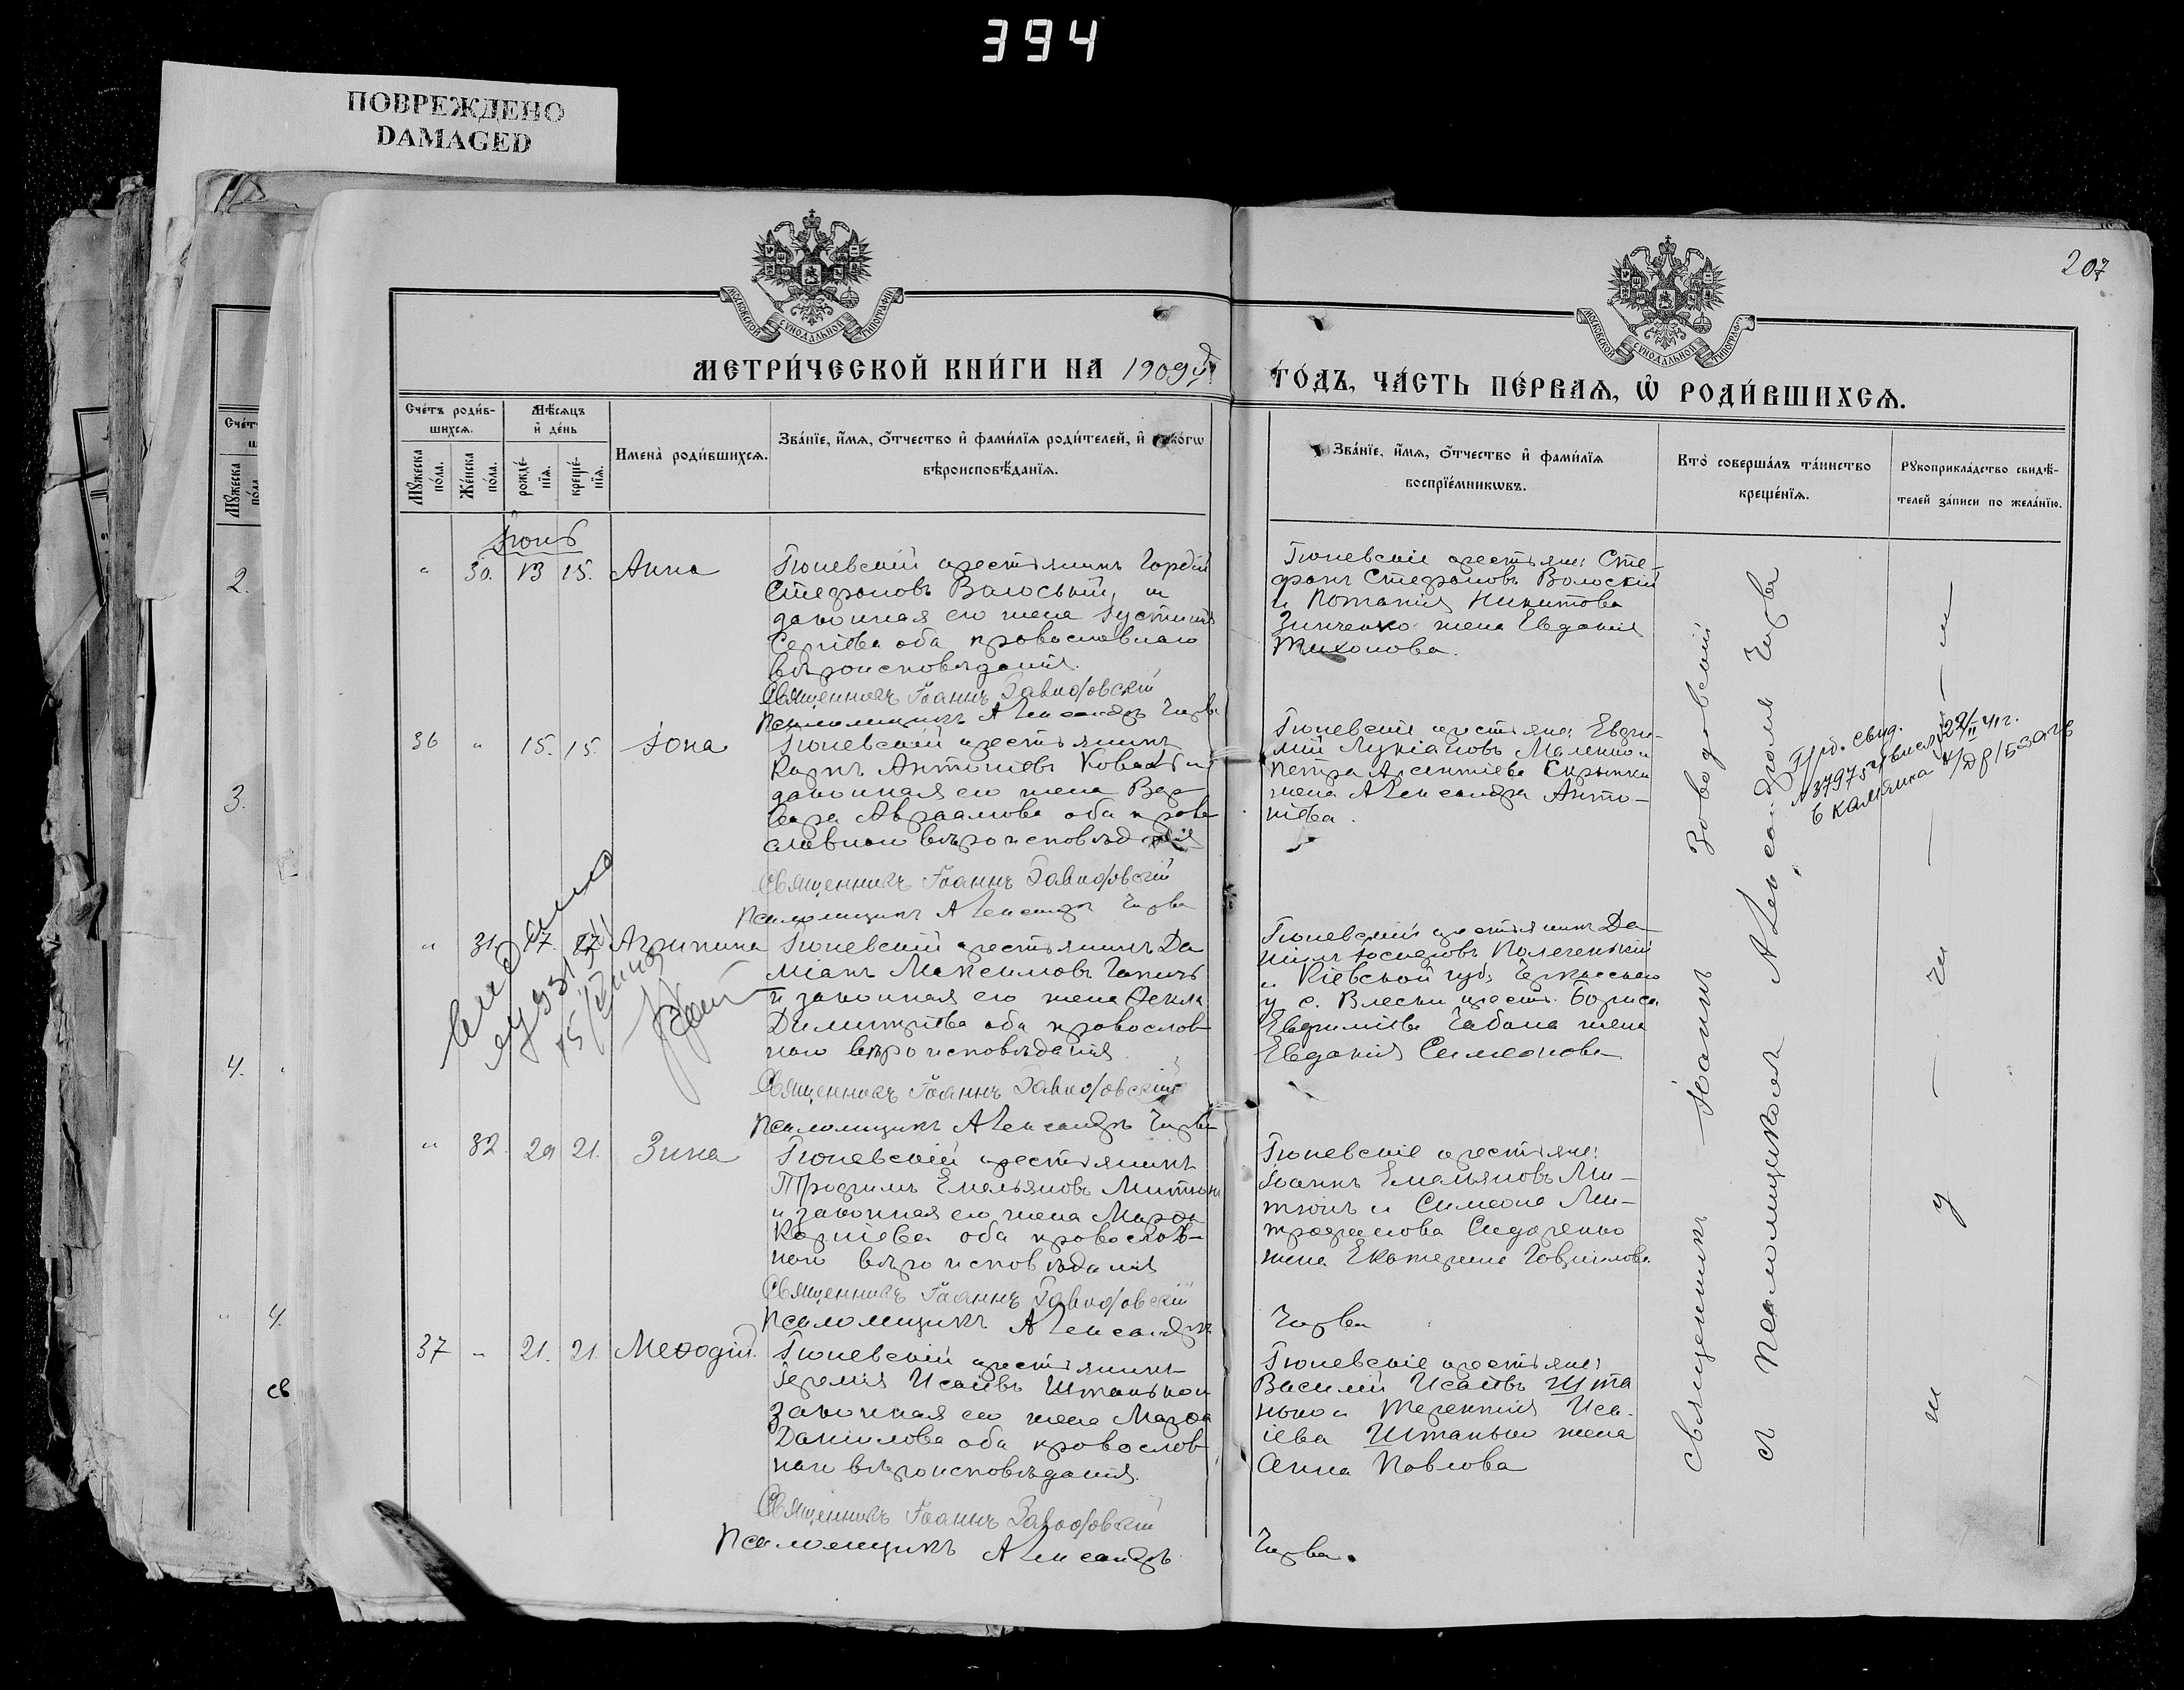 394
ПОВРЕЖДЕНО
DAMAGED
207
МОСКОВСКОЙ СѴНОДАЛЬНОЙ ТИПОГРАФІИ
МОСКОВСКОЙ СѴНОДАЛЬНОЙ ТИПОГРАФІИ
МЕТРИ́ЧЕСКОЙ КНИ́ГИ НА 1909й
ГО́ДЪ, ЧА́СТЬ ПЕ́РВАѦ, Ѽ РОДИ́ВШИХСѦ.
Сче́тъ роди́в-
шихсѧ.
Мѣ́сѧцъ
и҆ де́нь
Мꙋ́жеска
по́ла.
Же́нска
по́ла.
рожде́-
нїѧ.
креще́-
нїѧ.
Имена̀ роди́вшихсѧ.
Зва́нїе, и҆́мѧ, ѻ҆́тчество и҆ фами́лїѧ роди́телей, и҆ какогѡ
вѣроисповѣ́данїѧ.
Зва́нїе, и҆́мѧ, ѻ҆́тчество и҆ фами́лїѧ
воспрїе́мникѡвъ.
Кто̀ соверша́лъ та́инство
креще́нїѧ.
Рꙋкоприкла́дство свидѣ́-
телей за́писи по жела́нїю.
Іюнь
" 30. 13 15. Анна
Гюневскій крестьянинъ Гордій
Стефановъ Волоський, и
законная его жена Іустина
Сергіева оба православнаго
вѣроисповѣданія.
Священникъ Іоаннъ Заводовскій
Псаломщикъ Александръ Чирва
Гюневскіе крестьяне: Сте-
фанъ Стефановъ Волоскій
и Потапія Никитова
Зинченко жена Евдокія
Тихонова.
36 " 15. 15. Іона
Гюневскій крестьянинъ
Карпъ Антоніевъ Коваль и
законная его жена Вар-
вара Авраамова оба право
славнаго вѣроисповѣданія
Священникъ Іоаннъ Заводовскій
Псаломщикъ Александръ Чирва
Гюневскіе крестьяне Евфи-
мій Лукіановъ Маленко и
Петра Арсентіева Скрыпки
жена Александра Анто-
ніева.
" 31. 17. 17. Агрипина
Гюневскій крестьянинъ Да
міанъ Максимовъ
и законная его жена Ѳекла
Димитріева оба православ
наго вѣроисповѣданія.
Священникъ Іоаннъ Заводовскій
Псаломщикъ Александръ Чирва
Гюневскій крестьянинъ Да-
ніилъ Іосифовъ
и Кіевской губ. Черкасскаго
у. с. крест. Бориса
Евфиміева Чабана жена
Евдокія Симеонова
" 32. 20 21. Зина
Гюневскій крестьянинъ
Трофимъ Емельяновъ Митюнъ
и законная его жена Марѳа
Карпіева оба православ-
наго вѣроисповѣданія
Священникъ Іоаннъ Заводовскій
Псаломщикъ Александръ
Чирва
Гюневскіе крестьяне:
Іоаннъ Емельяновъ Ми-
тюнъ и Симеона Ми-
трофанова Сидоренко
жена Екатерина Гавриилова.
37 " 21. 21. Меѳодій.
Гюневскій крестьянинъ
Іеремія Исаіевъ Штанько и
законная его жена Марѳа
Даніилова оба православ
наго вѣроисповѣданія.
Священникъ Іоаннъ Заводовскій
Псаломщикъ Александръ
Чирва.
Гюневскіе крестьяне:
Василій Исаіевъ Шта
нько и Терентія Иса-
іева Штанько жена
Анна Павлова
Священникъ Іоаннъ Заводовскій
съ Псаломщикомъ Александромъ Чирва
2.
3.
4.
4.
св